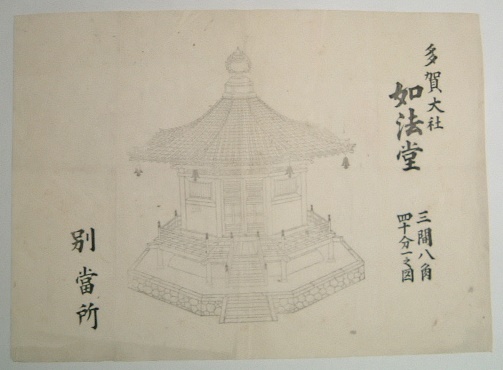 多賀大社
如法堂
三間八角
四十分一之図
別當所